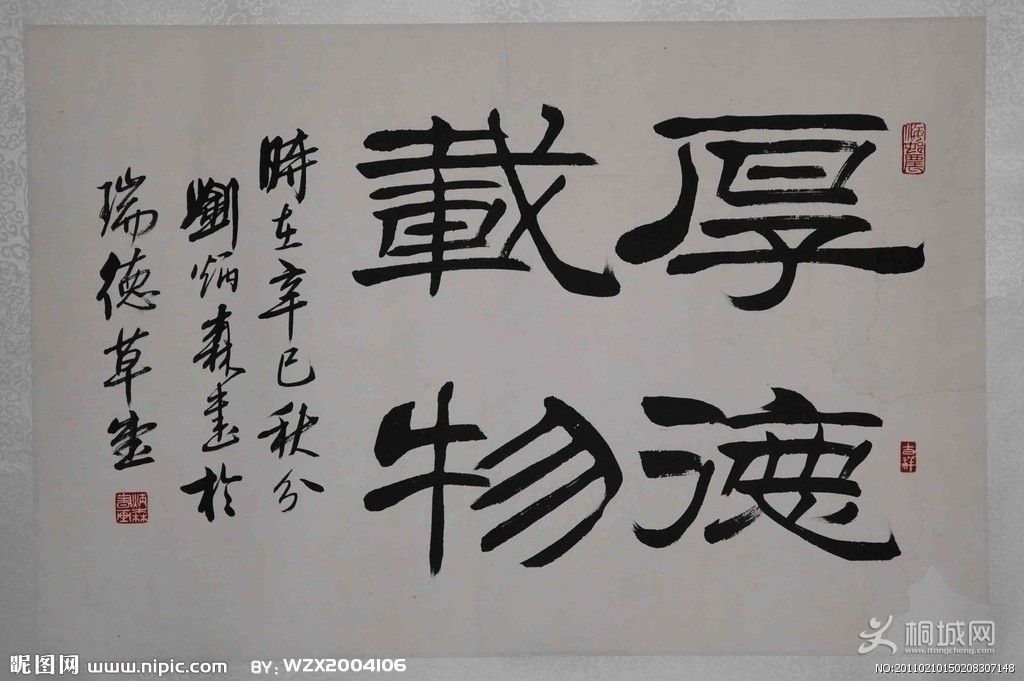 厚德
載物
時在辛巳秋分
劉炳森書於
瑞德草堂
吉祥
炳森書画
昵图网 www.nipic.com BY：WZX2004106
桐城网
www.itongcheng.com
NO:20110210150208307148